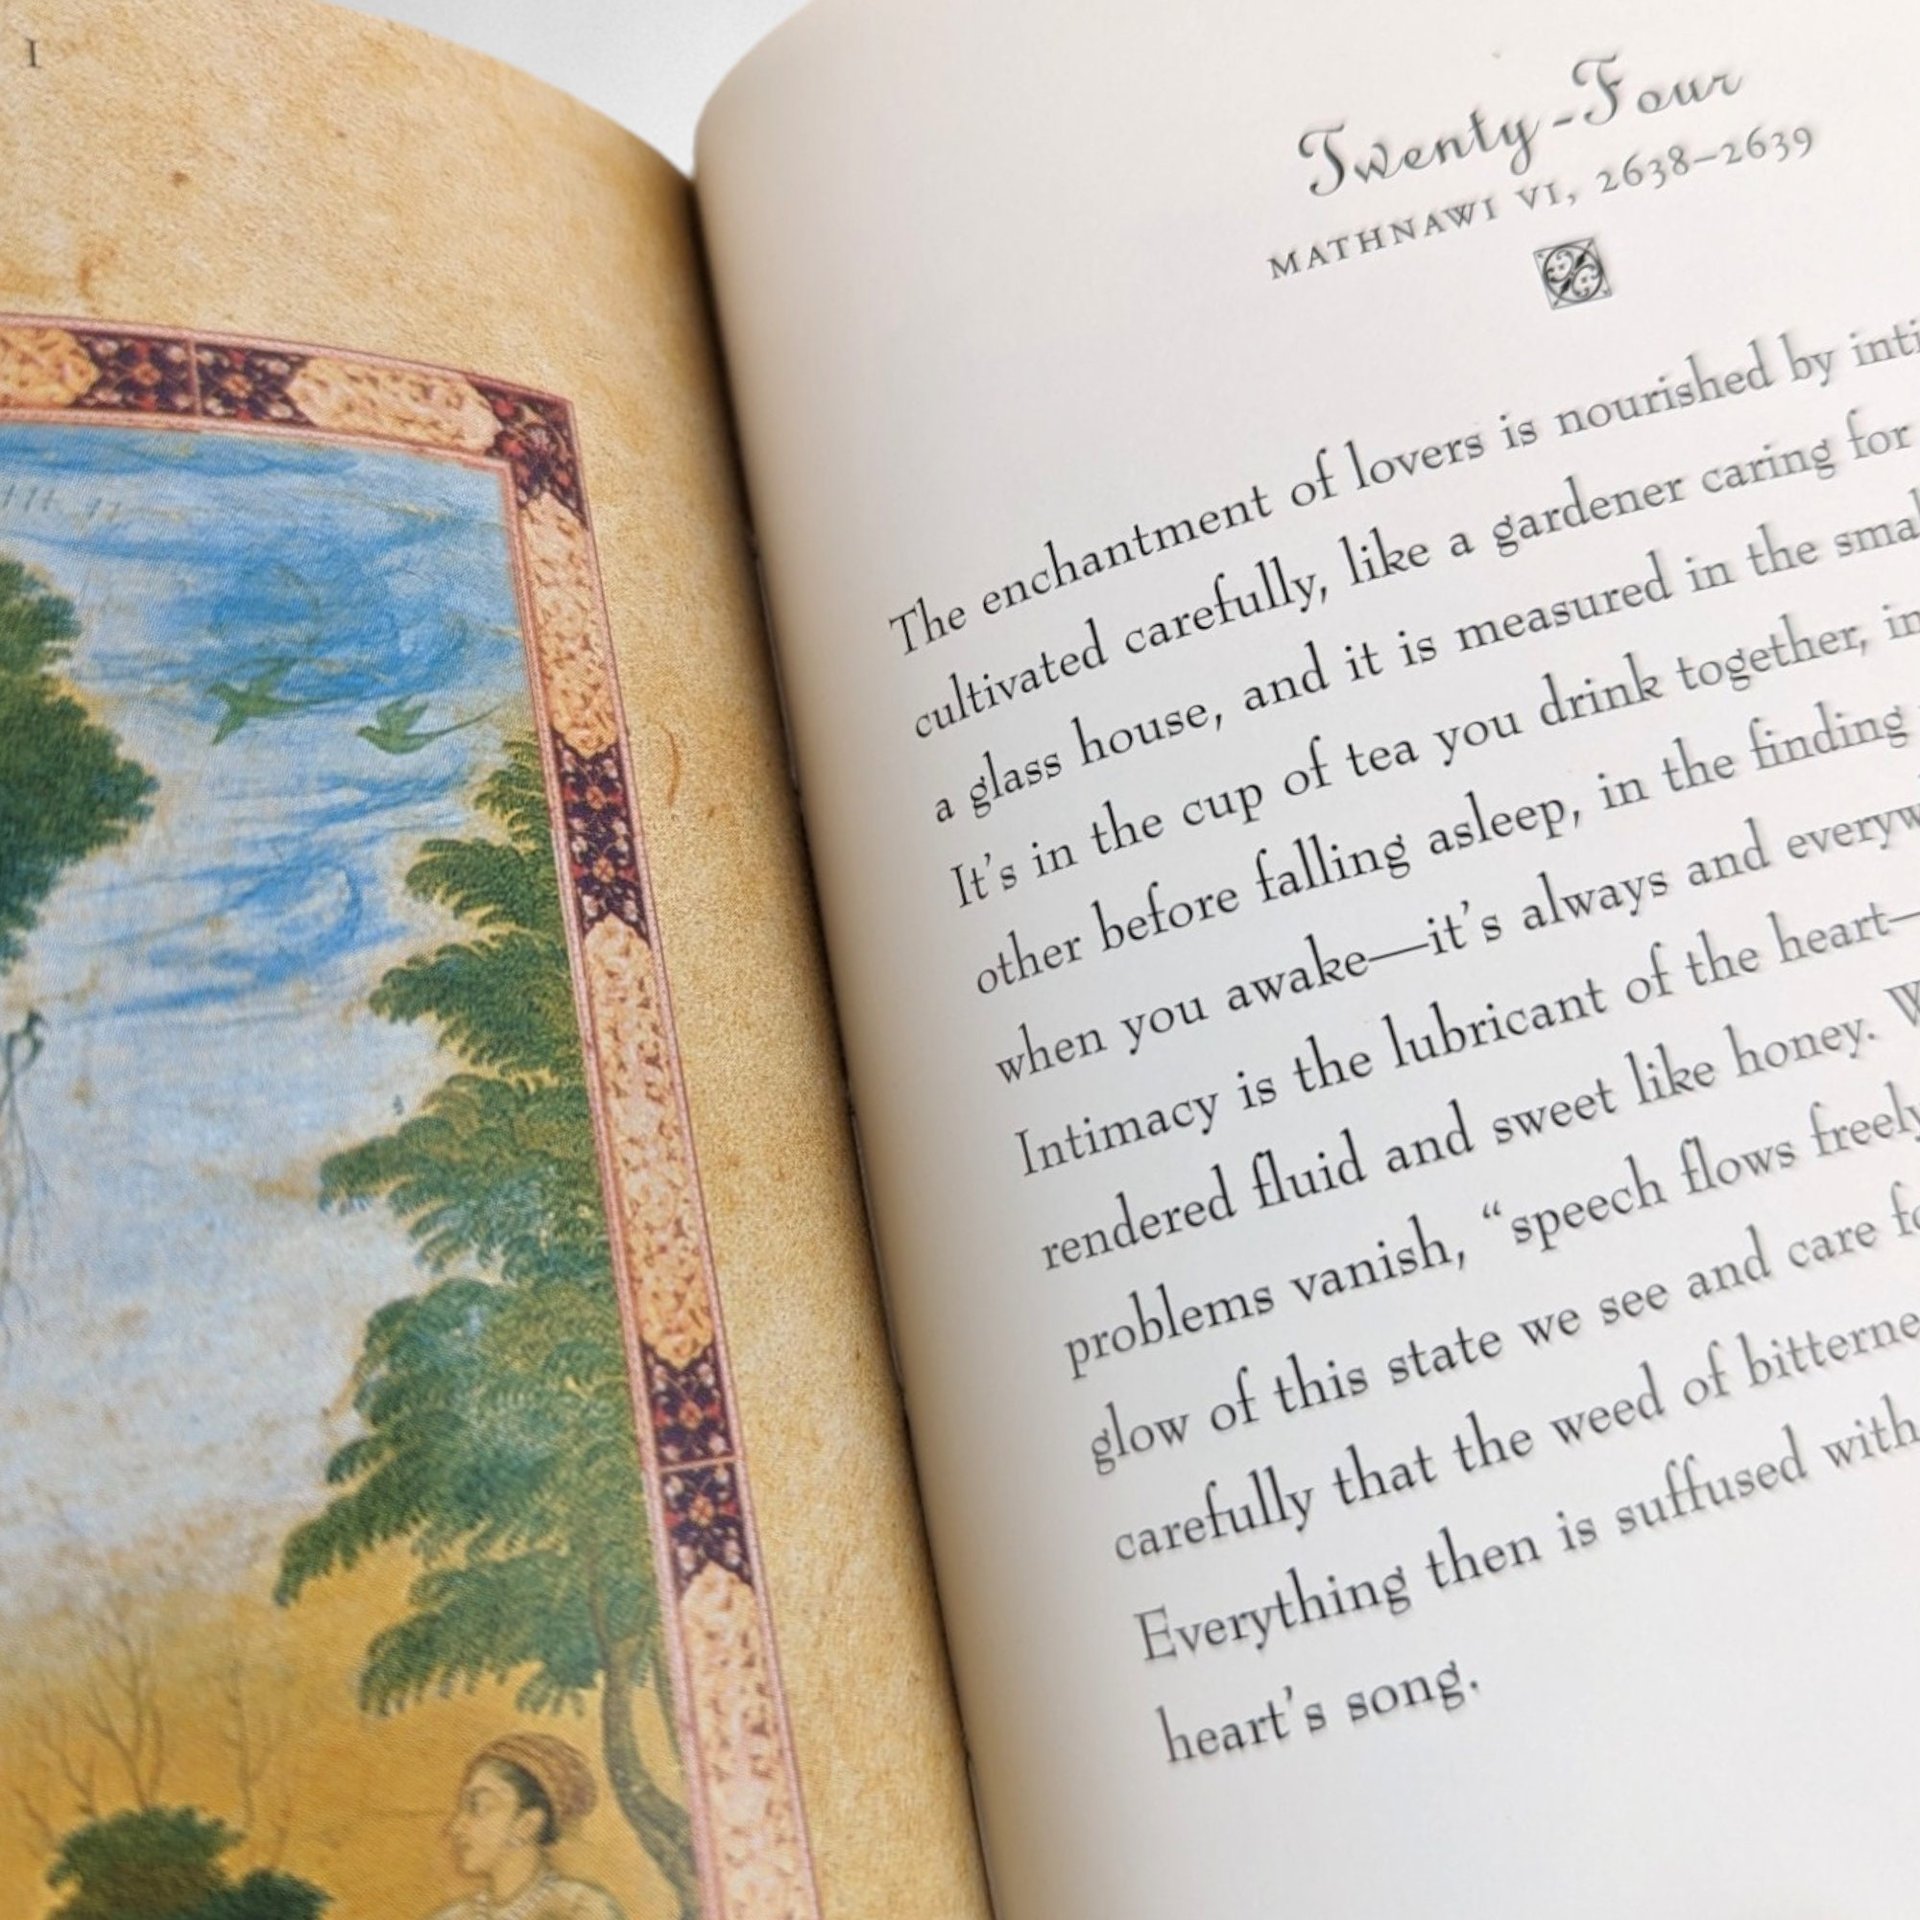 I
Twenty-Four
MATHNAWI VI, 2638–2639
The enchantment of lovers is nourished by
cultivated carefully, like a gardener caring for
a glass house, and it is measured in the
It's in the cup of tea you drink together,
other before falling asleep, in the finding
when you awake—it's always and
Intimacy is the lubricant of the heart—
rendered fluid and sweet like honey.
problems vanish, “speech flows freely
glow of this state we see and care
carefully that the weed of
Everything then is suffused with
heart's song.